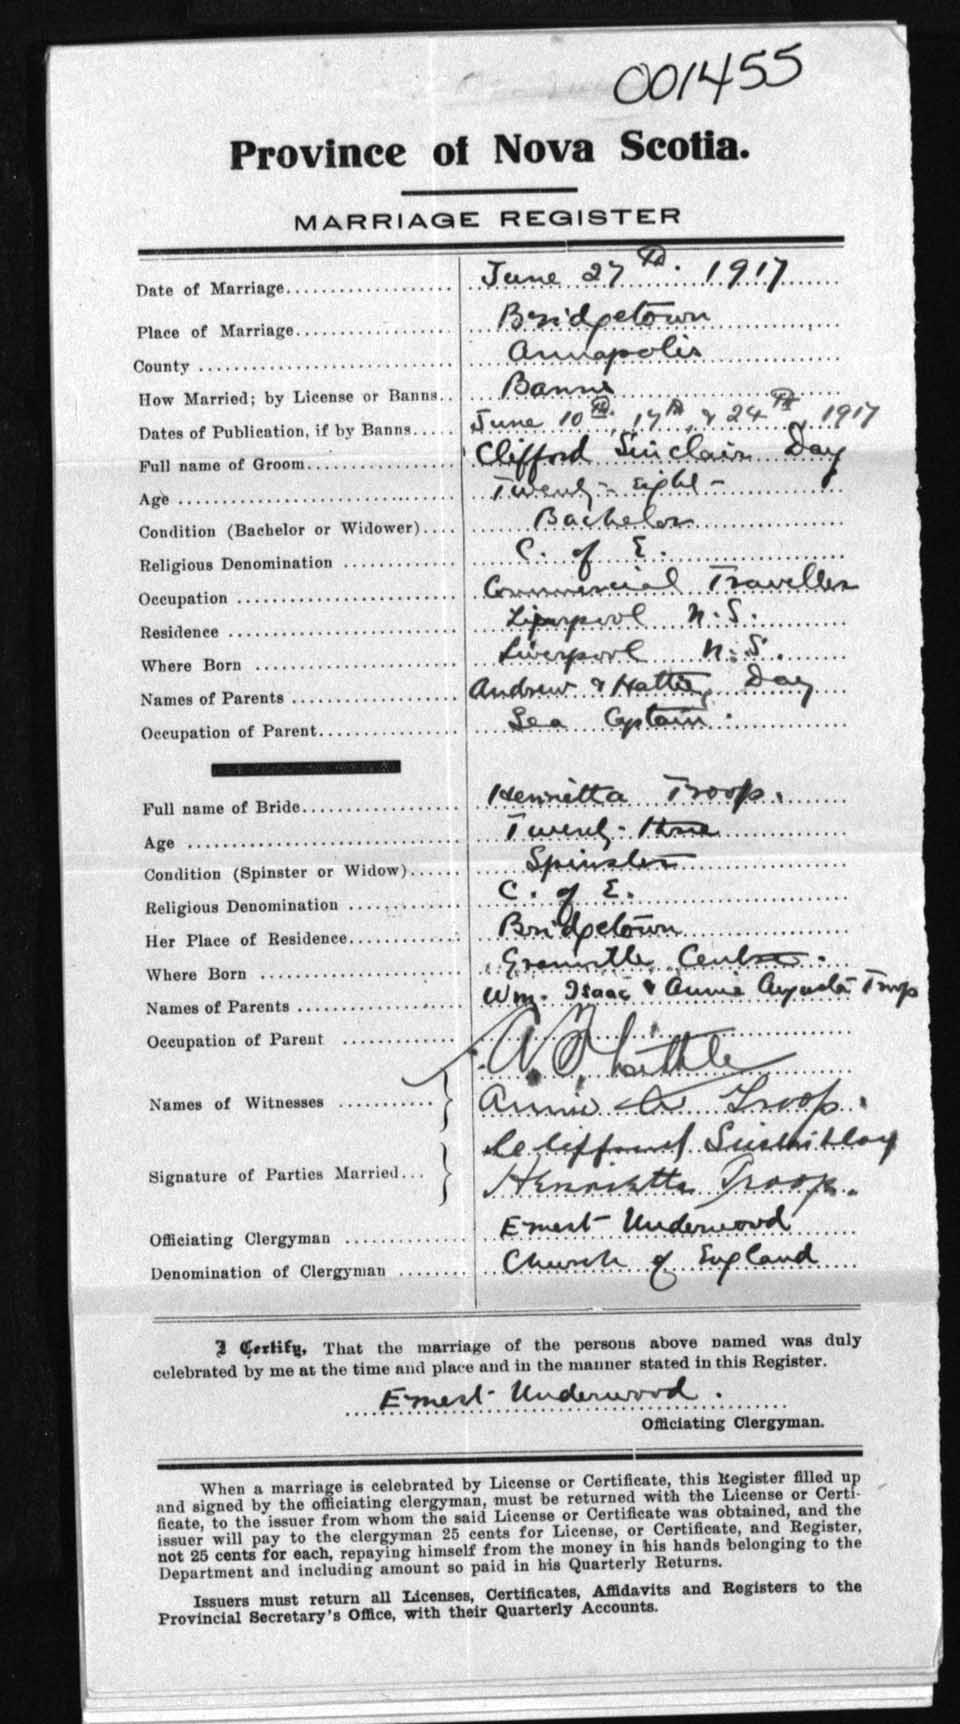 001455
Province of Nova Scotia.
MARRIAGE REGISTER
Date of Marriage June 27th. 1917
Place of Marriage Bridgetown
County Annapolis
How Married; by License or Banns Banns
Dates of Publication, if by Banns June 10th, 17th, & 24th, 1917
Full name of Groom Clifford Sinclair Day
Age Twenty-eight-
Condition (Bachelor or Widower) Bachelor
Religious Denomination C. of E.
Occupation Commercial Traveller
Residence Liverpool N.S.
Where Born Liverpool N.S.
Names of Parents Andrew & Hattie Day
Occupation of Parent Sea Captain.
Full name of Bride Henrietta Troop.
Age Twenty-three
Condition (Spinster or Widow) Spinster
Religious Denomination C. of E.
Her Place of Residence Bridgetown
Where Born Granville Centre.
Names of Parents Wm. Isaac & Annie Augusta Troop
Occupation of Parent
Names of Witnesses
Annie Troop.
Signature of Parties Married Clifford Day
Henrietta Troop.
Officiating Clergyman Ernest Underwood
Denomination of Clergyman Church of England
I Certify, That the marriage of the persons above named was duly
celebrated by me at the time and place and in the manner stated in this Register.
Ernest Underwood.
Officiating Clergyman.
When a marriage is celebrated by License or Certificate, this Register filled up
and signed by the officiating clergyman, must be returned with the License or Certi-
ficate, to the issuer from whom the said License or Certificate was obtained, and the
issuer will pay to the clergyman 25 cents for License, or Certificate, and Register,
not 25 cents for each, repaying himself from the money in his hands belonging to the
Department and including amount so paid in his Quarterly Returns.
Issuers must return all Licenses, Certificates, Affidavits and Registers to the
Provincial Secretary's Office, with their Quarterly Accounts.